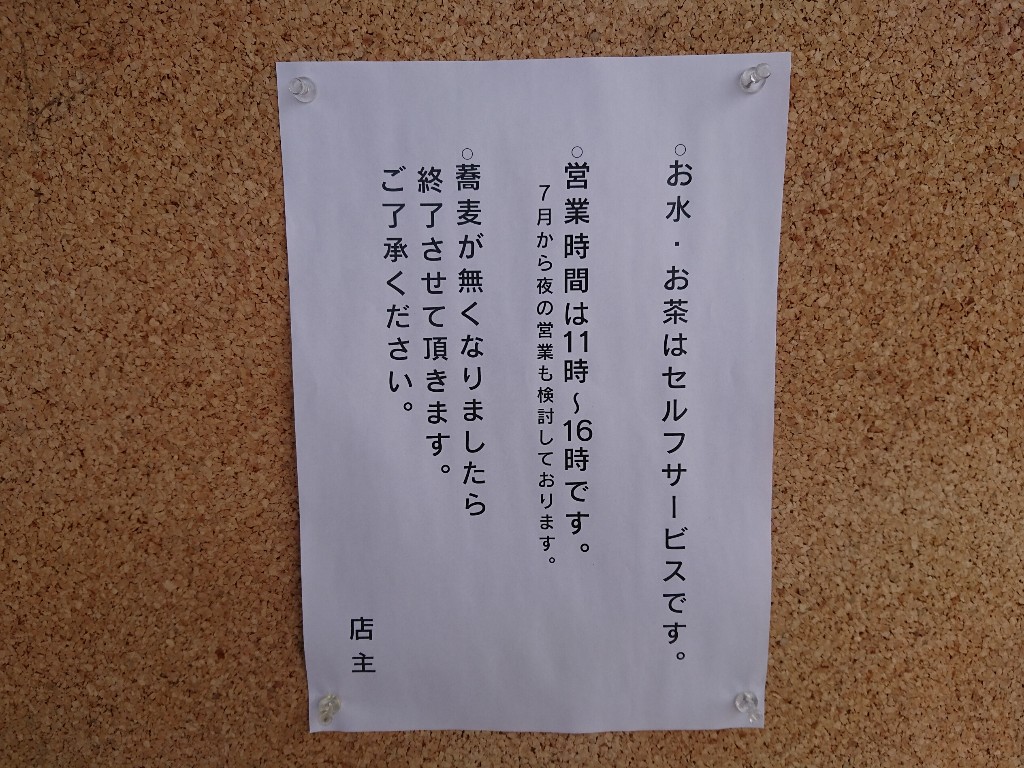 ○お水・お茶はセルフサービスです。
○営業時間は11時～16時です。
7月から夜の営業も検討しております。
○蕎麦が無くなりましたら
終了させて頂きます。
ご了承ください。
店主